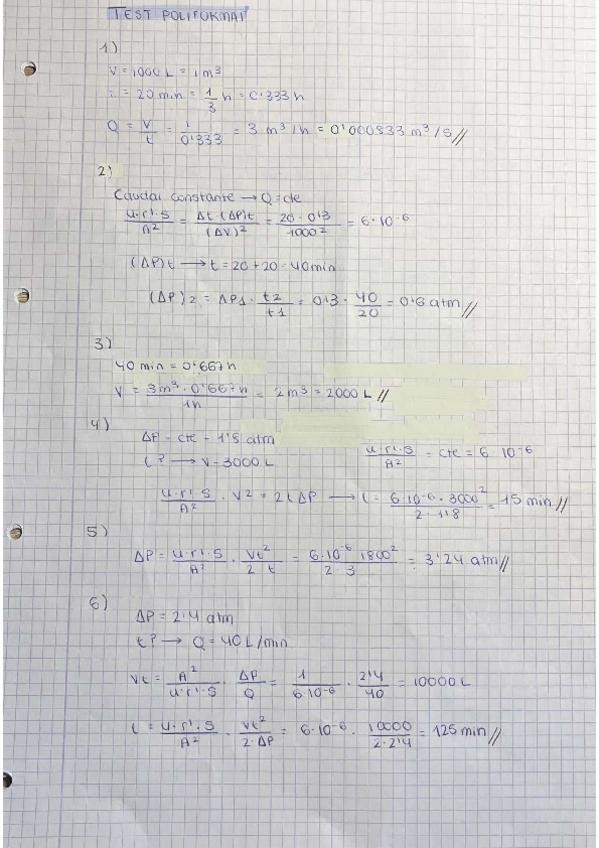 TEST POLIFORMAT
1)
V = 1000 L = 1 m³
t = 20 min = 1/3 h = 0'333 h
Q = V/t = 1/0'333 = 3 m³/h = 0'000833 m³/s //
2)
Caudal constante → Q = cte
u·r'·S/A² = Δt·(ΔP)t/(ΔV)² = 20·0'3/1000² = 6·10⁻⁶
(ΔP)t → t = 20 + 20 = 40 min
(ΔP)₂ = ΔP₁ · t2/t1 = 0'3 · 40/20 = 0'6 atm //
3)
40 min = 0'667 h
V = 3m³ · 0'667h/1h = 2 m³ = 2000 L //
4)
ΔP = cte = 1'8 atm
t? → V = 3000 L
u·r'·S/A² = cte = 6·10⁻⁶
u·r'·S/A² · V² = 2tΔP → t = 6·10⁻⁶·3000²/2·1'8 = 15 min //
5)
ΔP = u·r'·S/A² · Vt²/2 t = 6·10⁻⁶·1800²/2·3 = 3'24 atm //
6)
ΔP = 2'4 atm
t? → Q = 40 L/min
Vt = A²/u·r'·S · ΔP/Q = 1/6·10⁻⁶ · 2'4/40 = 10000 L
t = u·r'·S/A² · Vt²/2·ΔP = 6·10⁻⁶ · 10000/2·2'4 = 125 min //